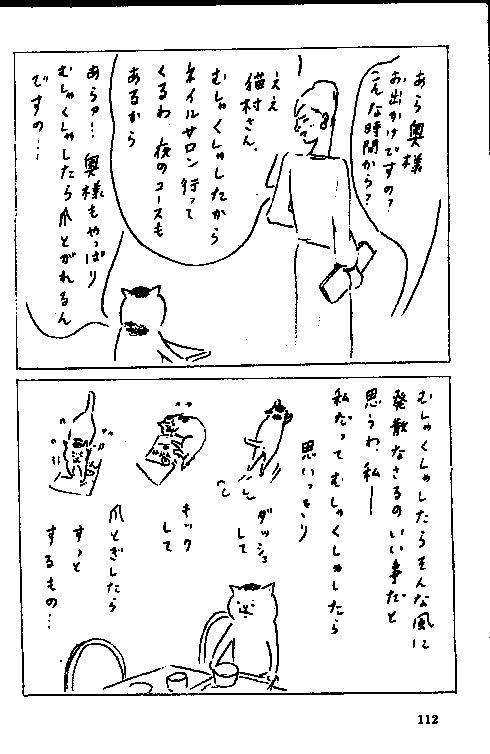 あら奥様
お出かけですの?
こんな時間から?
ええ
猫村さん、
むしゃくしゃしたから
ネイルサロン行って
くるわ、夜のコースも
あるから
あらッ…奥様もやっぱり
むしゃくしゃしたら爪とがれるん
ですの…
むしゃくしゃしたらそんな風に
発散なさるのいい事だと
思うわ、私―
私だってむしゃくしゃしたら
思いっきり
ダッシュ
して
キック
して
爪とぎしたら
すっと
するもの…
112